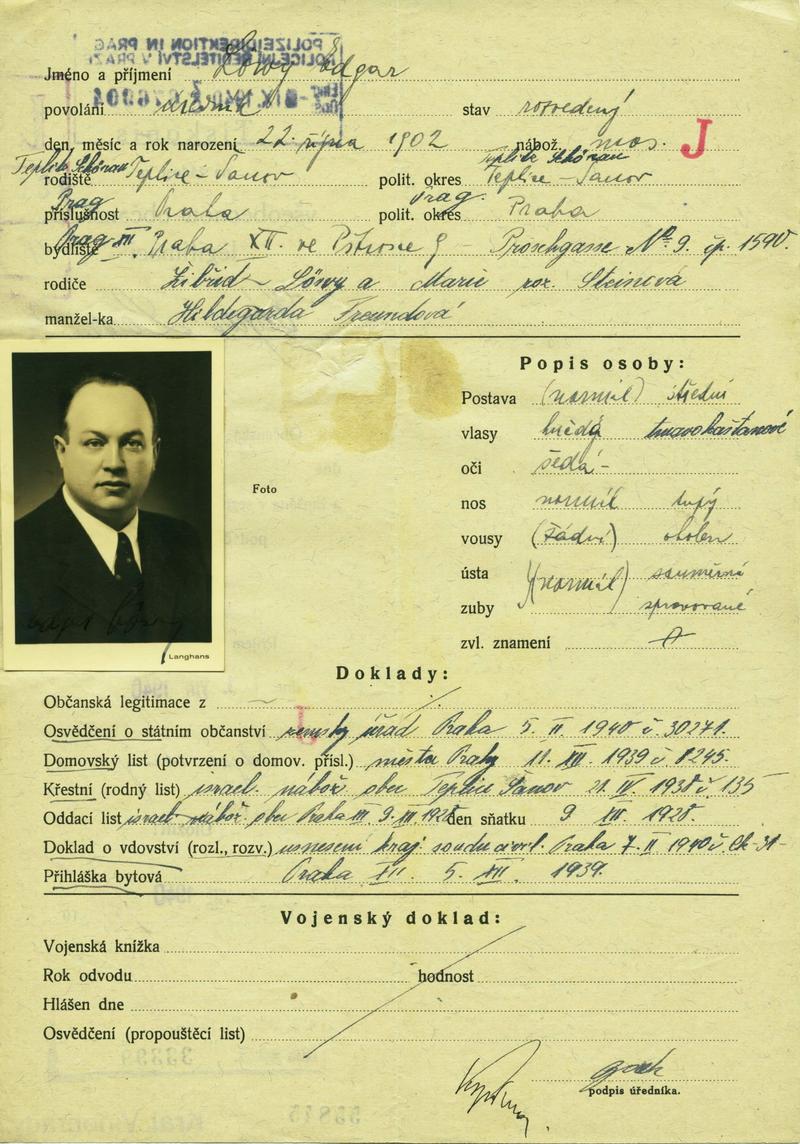 POLIZEIDIREKTION IN PRAG
POLICEJNÍ ŘEDITELSTVÍ V PRAZE
Jméno a příjmení Löwy Edgar
povolání úředník stav rozvedený
den, měsíc a rok narození 22. října 1902 nábož. mos. J
Teplitz Schönau Teplitz Schönau
rodiště Teplice-Šanov polit. okres Teplice-Šanov
Prag Prag
příslušnost Praha polit. okres Praha
bydliště Prag XII Praha XII. ve Pštrosce 9 - Proschgasse No 9. čp. 1590.
rodiče Löwy a Marie roz. Steinová
manžel-ka Hildegarda Freundová
Popis osoby:
Postava (normál) střední
vlasy hnědý tmavokaštanové
oči šedá-
nos normál tupý
vousy (žádné) oholen
ústa (normál) souměrná
zuby spravované
zvl. znamení
Foto
Langhans
Doklady:
Občanská legitimace z
J
Osvědčení o státním občanství zemský úřad Praha 5. II. 1940 č. 30271.
Domovský list (potvrzení o domov. přísl.) města Prahy 11. XII. 1939 č 8245.
Křestní (rodný list) israel. nábož. obec Teplice Šanov 21. IV. 1938 č 135
Oddací list israel. nábož. obec Praha III. 9. III. 1928 den sňatku 9 III. 1928.
Doklad o vdovství (rozl., rozv.) usnesení kraj. soudu Praha 7. II 1940 č. Ck-31-
Přihláška bytová Praha XII. 5. XII. 1939.
Vojenský doklad:
Vojenská knížka
Rok odvodu hodnost
Hlášen dne
Osvědčení (propouštěcí list)
podpis úředníka.